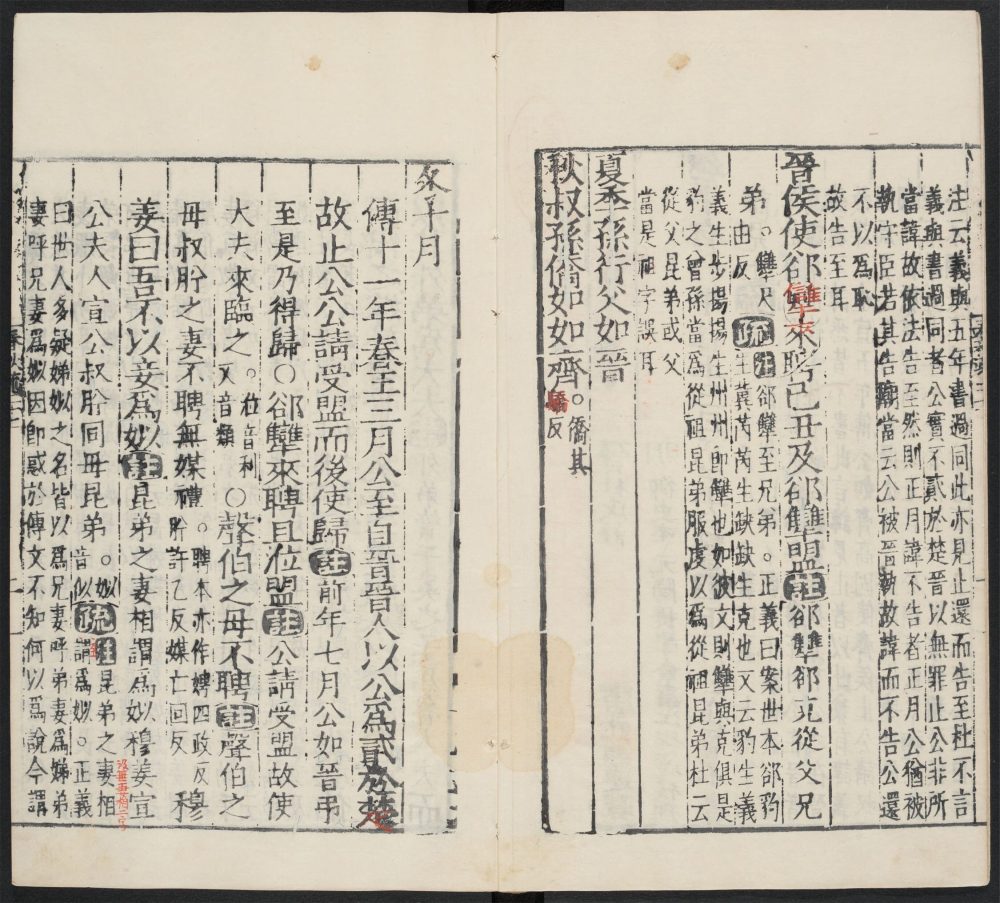 注云義與五年書過同此亦見止還而告至杜不言
義與書過同者公實不貳於楚晉以無罪止公非所
當諱故依法告至然則正月諱不告者正月公猶被
執守臣若其告廟當云公被晉執故諱而不告公還
不以為恥
故告至耳
晉侯使郤犨來聘己丑及郤犨盟註郤犨郤克從父兄
弟。犨尺
由反
疏注郤犨至兄弟。正義曰案世本郤豹
生冀芮芮生缺缺生克也又云豹生義
義生步揚揚生州州即犨也如彼文則犨與克俱是
豹之曾孫當為從祖昆弟服虔以為從祖昆弟杜云
從父昆弟或父
當是祖字誤耳
夏季孫行父如晉
秋叔孫僑如如齊。僑其
驕反
冬十月
傳十一年春王三月公至自晉晉人以公為貳於楚
故止公公請受盟而後使歸註前年七月公如晉弔
至是乃得歸○郤犨來聘且涖盟註公請受盟故使
大夫來臨之。涖音利
又音類
○聲伯之母不聘註聲伯之
母叔肸之妻不聘無媒禮。聘本亦作娉匹政反
肸許乙反媒亡回反
穆
姜曰吾不以妾為姒註昆弟之妻相謂為姒穆姜宣
公夫人宣公叔肸同母昆弟。姒
音似
疏注昆弟之妻相
謂為姒。正義
曰世人多疑娣姒之名皆以為兄妻呼弟妻為娣弟
妻呼兄妻為姒因即惑於傳文不知何以為說今謂